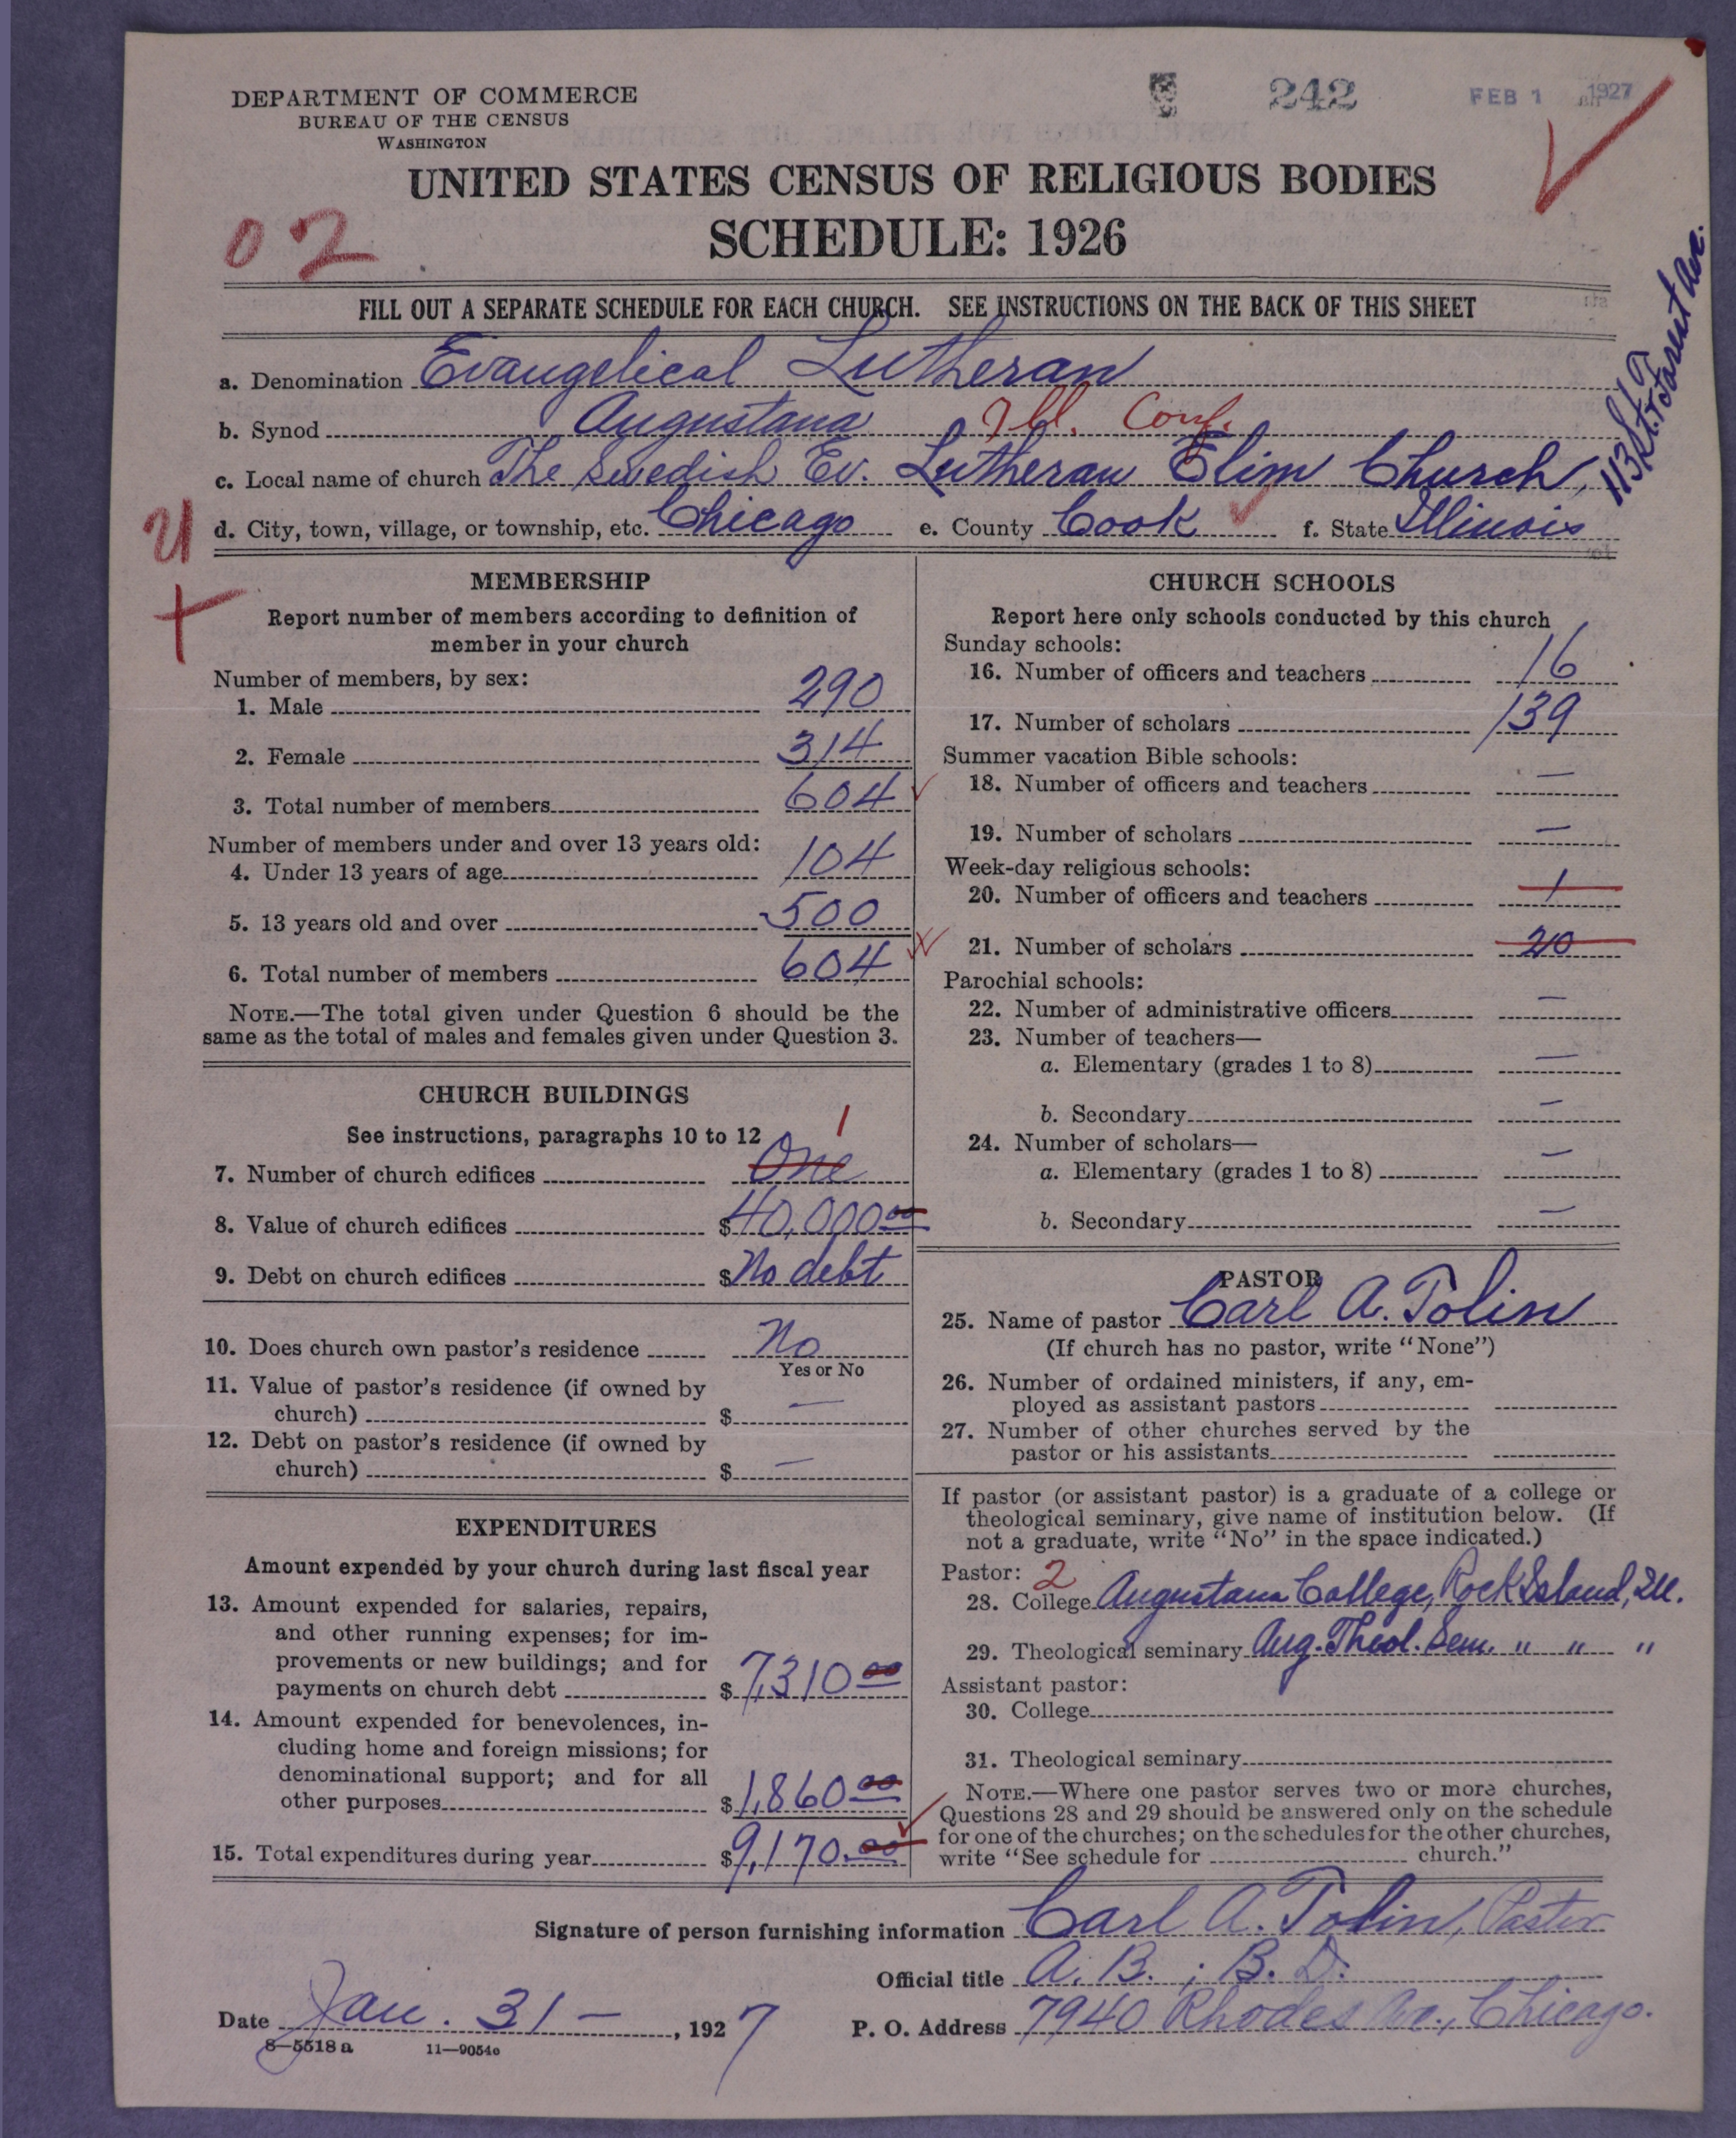 DEPARTMENT OF COMMERCE
BUREAU OF THE CENSUS
WASHINGTON
242
FEB 1 1927
UNITED STATES CENSUS OF RELIGIOUS BODIES
SCHEDULE: 1926
02
FILL OUT A SEPARATE SCHEDULE FOR EACH CHURCH. SEE INSTRUCTIONS ON THE BACK OF THIS SHEET
a. Denomination Evangelical Lutheran
b. Synod Augustana Ill. Conf.
c. Local name of church The Swedish Ev. Lutheran Elim Church,
113th St. & Forest Ave.
d. City, town, village, or township, etc. Chicago e. County Cook f. State Illinois
MEMBERSHIP
Report number of members according to definition of
member in your church
Number of members, by sex:
1. Male 290
2. Female 314
3. Total number of members 604
Number of members under and over 13 years old:
4. Under 13 years of age 104
5. 13 years old and over 500
6. Total number of members 604
NOTE.—The total given under Question 6 should be the
same as the total of males and females given under Question 3.
CHURCH BUILDINGS
See instructions, paragraphs 10 to 12
1
7. Number of church edifices One
8. Value of church edifices $40,000 00
9. Debt on church edifices $No debt
10. Does church own pastor's residence No
Yes or No
11. Value of pastor's residence (if owned by
church) $ —
12. Debt on pastor's residence (if owned by
church) $ —
EXPENDITURES
Amount expended by your church during last fiscal year
13. Amount expended for salaries, repairs,
and other running expenses; for im-
provements or new buildings; and for
payments on church debt $7,310 00
14. Amount expended for benevolences, in-
cluding home and foreign missions; for
denominational support; and for all
other purposes $1,860 00
15. Total expenditures during year $9,170.00
CHURCH SCHOOLS
Report here only schools conducted by this church
Sunday schools:
16. Number of officers and teachers 16
17. Number of scholars 139
Summer vacation Bible schools:
18. Number of officers and teachers —
19. Number of scholars —
Week-day religious schools:
20. Number of officers and teachers 1
21. Number of scholars 20
Parochial schools:
22. Number of administrative officers —
23. Number of teachers—
a. Elementary (grades 1 to 8) —
b. Secondary —
24. Number of scholars—
a. Elementary (grades 1 to 8) —
b. Secondary —
PASTOR
25. Name of pastor Carl A. Tolin
(If church has no pastor, write "None")
26. Number of ordained ministers, if any, em-
ployed as assistant pastors
27. Number of other churches served by the
pastor or his assistants
If pastor (or assistant pastor) is a graduate of a college or
theological seminary, give name of institution below. (If
not a graduate, write "No" in the space indicated.)
Pastor: 2
28. College Augustana College, Rock Island, Ill.
29. Theological seminary Aug. Theol. Sem. " " "
Assistant pastor:
30. College
31. Theological seminary
NOTE.—Where one pastor serves two or more churches,
Questions 28 and 29 should be answered only on the schedule
for one of the churches; on the schedules for the other churches,
write "See schedule for church."
Signature of person furnishing information Carl A. Tolin, Pastor
Official title A. B. ; B. D.
Date Jan. 31 — , 1927
P. O. Address 7940 Rhodes Av., Chicago.
8—5518 a 11—9054c